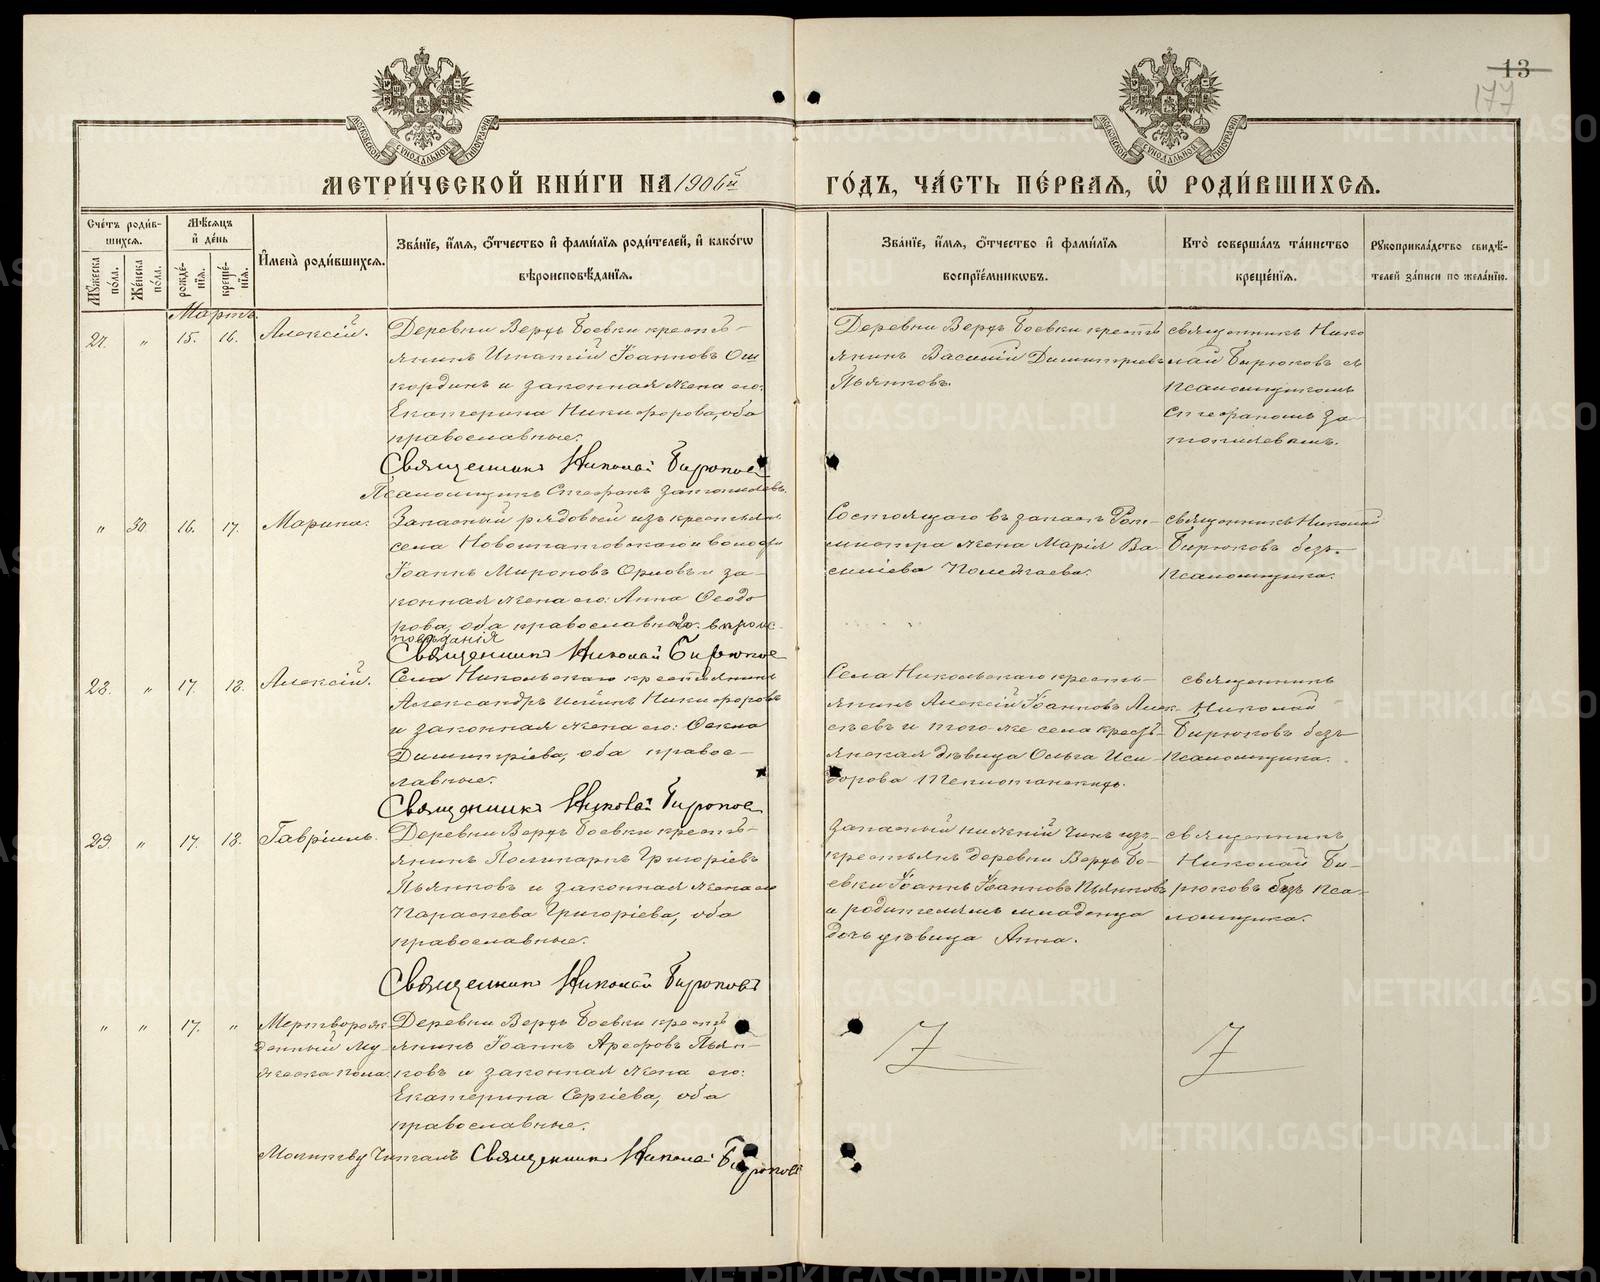 13
177
МЕТРИ́ЧЕСКОЙ КНИ́ГИ НА 1906й ГО́ДЪ, ЧА́СТЬ ПЕ́РВАЯ, Ѽ РОДИ́ВШИХСЯ.
Сче́тъ роди́в-
шихся.
Мѣ́сяцъ
и҆ де́нь
И҆мена̀ роди́вшихся.
Зва́нїе, и҆́мя, ѻ҆́тчество и҆ фами́лїя роди́телей, и҆ како́гѡ
вѣроисповѣ́данїя.
Зва́нїе, и҆́мя, ѻ҆́тчество и҆ фами́лїя
воспрїе́мниковъ.
Кто̀ соверша́лъ та́инство
креще́нїя.
Рꙋкоприкла́дство свидѣ́-
телей за́писи по жела́нїю.
Мꙋ́жеска по́ла.
Же́нска по́ла.
рожде́-нїя.
креще́-нїя.
Мартъ.
27. „ 15. 16. Алексій.
Деревни Верхъ Боевки кресть-
янинъ Игнатій Іоанновъ
и законная жена его:
Екатерина Никифорова, оба
православные.
Священникъ Николай Бирюковъ
Псаломщикъ Стефанъ Затопляевъ.
Деревни Верхъ Боевки кресть
янинъ Василій Димитріевъ
Пьянковъ.
священникъ Нико
лай Бирюковъ съ
псаломщикомъ
Стефаномъ За-
„ 30. 16. 17. Марина.
Запасный рядовый изъ крестьянъ
села Новоипатовскаго и волости
Іоаннъ Мироновъ Орловъ и за-
конная жена его: Анна Ѳеодо
рова, оба православнаго вѣроис-
повѣданія
Священникъ Николай Бирюков
Состоящаго въ запасѣ Рот-
мистра жена Марія Ва-
силіева
священникъ Николай
Бирюковъ безъ
псаломщика.
28. „ 17. 18. Алексій.
Села Никольскаго крестьянинъ
Александръ Никифоровъ
и законная жена его: Ѳекла
Димитріева, оба правос-
лавные.
Священникъ Николай Бирюков
Села Никольскаго кресть-
янинъ Алексій Іоанновъ Алек-
сѣевъ и того-же села кресть-
янская дѣвица Ольга Иси-
дорова
священникъ
Николай
Бирюковъ безъ
псаломщика.
29. „ 17. 18. Гавріилъ.
Деревни Верхъ Боевки кресть-
янинъ Поликарпъ Григоріевъ
Пьянковъ и законная жена его
Параскева Григоріева, оба
православные.
Священникъ Николай Бирюковъ
Запасный нижній чинъ изъ
крестьянъ деревни Верхъ Бо-
евки Іоаннъ Іоанновъ Пьянковъ
и родителямъ младенца
дочь дѣвица Анна.
священникъ
Николай Би-
рюковъ безъ пса-
ломщика.
„ „ 17. „ Мертворож-
денный му-
жеска пола.
Деревни Верхъ Боевки кресть
янинъ Іоаннъ Ареѳовъ Пьян-
ковъ и законная жена его:
Екатерина Сергіева, оба
православные.
Молитву читалъ Священникъ Николай Бирюковъ
METRIKI.GASO-URAL.RU